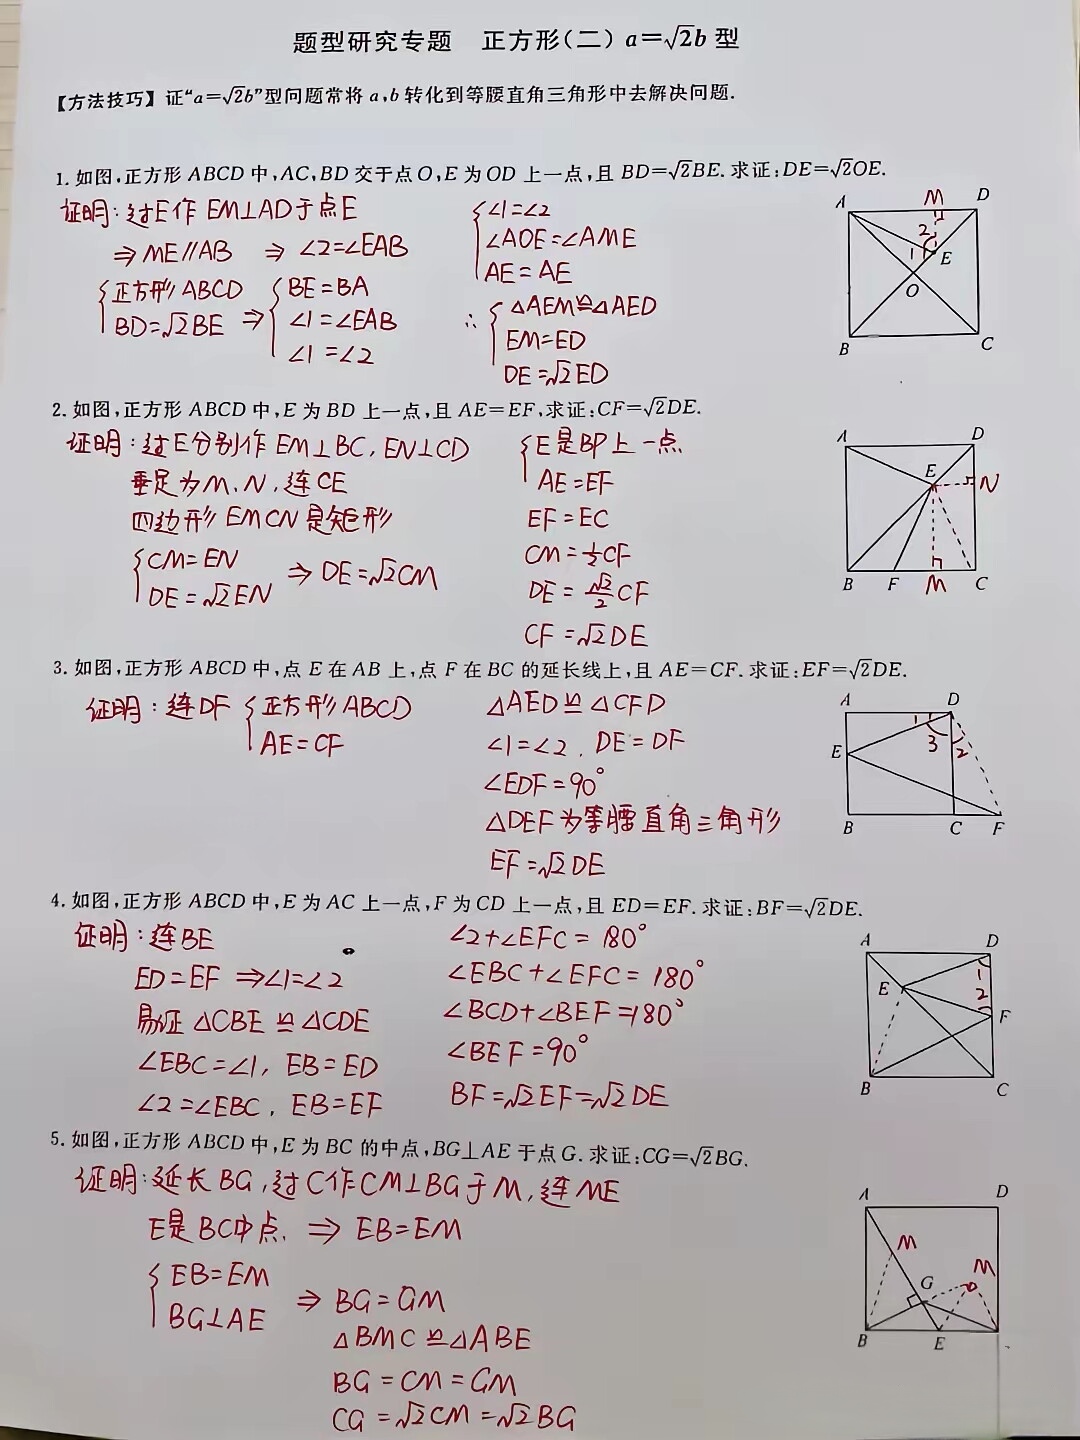 题型研究专题 正方形(二) a=√2b 型
【方法技巧】证“a=√2b”型问题常将 a,b 转化到等腰直角三角形中去解决问题.
1. 如图,正方形 ABCD 中,AC,BD 交于点 O,E 为 OD 上一点,且 BD=√2BE. 求证:DE=√2OE.
证明:过E作 EM⊥AD于点E
⇒ ME∥AB ⇒ ∠2=∠EAB
正方形ABCD
BD=√2BE ⇒
BE=BA
∠1=∠EAB
∠1=∠2
∠1=∠2
∠AOE=∠AME
AE=AE
∴
△AEM≌△AED
EM=ED
DE=√2ED
A M D
2
1 E
O
B C
2. 如图,正方形 ABCD 中,E 为 BD 上一点,且 AE=EF,求证:CF=√2DE.
证明:过E分别作 EM⊥BC,EN⊥CD
垂足为M、N,连CE
四边形EMCN是矩形
CM=EN
DE=√2EN ⇒ DE=√2CM
E是BP上一点
AE=EF
EF=EC
CM=½CF
DE=√2/2 CF
CF=√2DE
A D
E N
B F M C
3. 如图,正方形 ABCD 中,点 E 在 AB 上,点 F 在 BC 的延长线上,且 AE=CF. 求证:EF=√2DE.
证明:连DF
正方形ABCD
AE=CF
△AED≌△CFD
∠1=∠2, DE=DF
∠EDF=90°
△DEF为等腰直角三角形
EF=√2DE
A D
1 3 2
E
B C F
4. 如图,正方形 ABCD 中,E 为 AC 上一点,F 为 CD 上一点,且 ED=EF. 求证:BF=√2DE.
证明:连BE
ED=EF ⇒∠1=∠2
易证 △CBE≌△CDE
∠EBC=∠1, EB=ED
∠2=∠EBC, EB=EF
∠2+∠EFC=180°
∠EBC+∠EFC=180°
∠BCD+∠BEF=180°
∠BEF=90°
BF=√2EF=√2DE
A D
1
E 2
F
B C
5. 如图,正方形 ABCD 中,E 为 BC 的中点,BG⊥AE 于点 G. 求证:CG=√2BG.
证明:延长BG,过C作CM⊥BG于M,连ME
E是BC中点. ⇒ EB=EM
EB=EM
BG⊥AE ⇒ BG=GM
△BMC≌△ABE
BG=CM=GM
CG=√2CM=√2BG
A D
M
M
G
B E